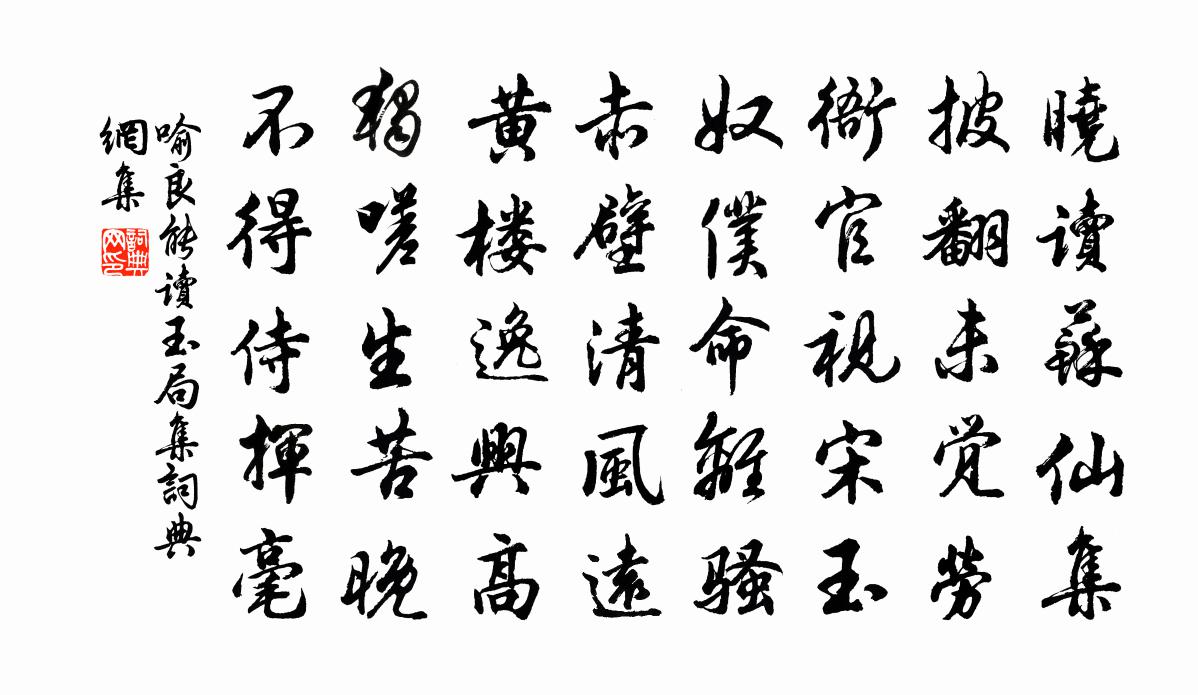 曉讀蘇仙集
披翻未覺勞
衙官視宋玉
奴僕命離騷
赤壁清風遠
黄楼逸興高
獨嗟生苦晚
不得侍揮毫
喻良能讀玉局集詞典
網集
詞典
网印